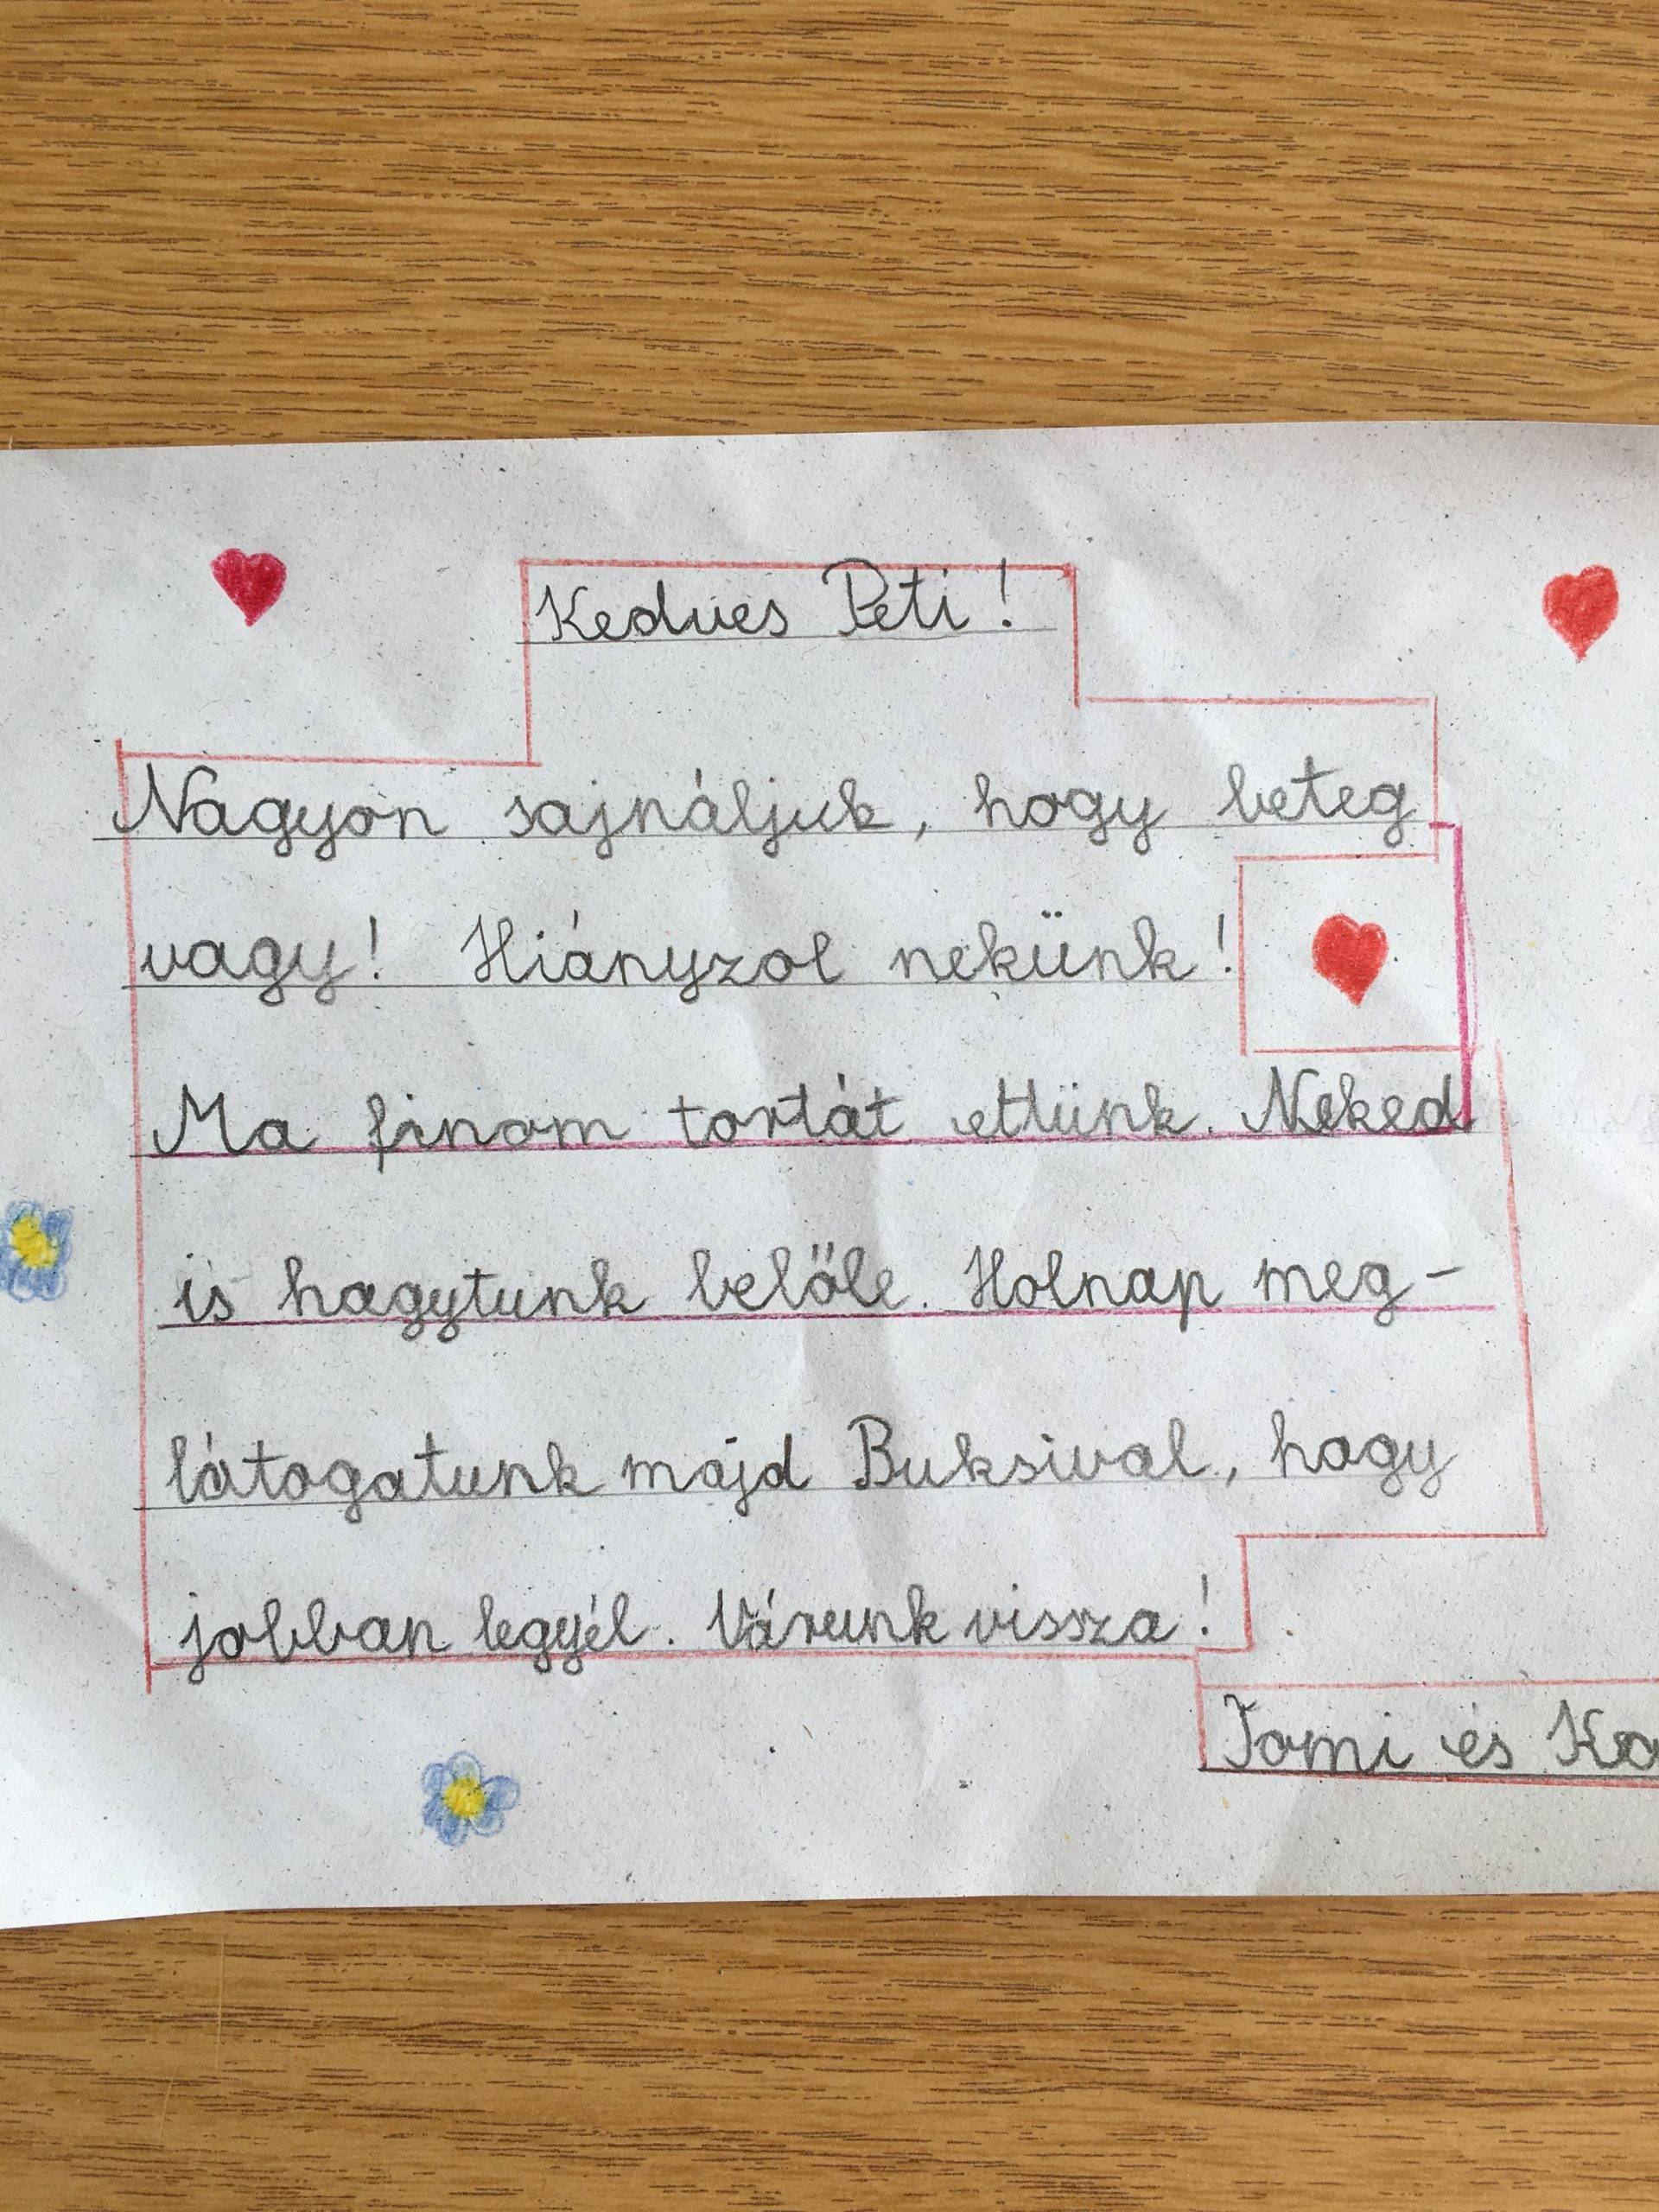 Kedves Peti!
Nagyon sajnáljuk, hogy beteg
vagy! Hiányzol nekünk!
Ma finom tortát ettünk. Neked
is hagytunk belőle. Holnap meg-
látogatunk majd Buksival, hogy
jobban legyél. Várunk vissza!
Tomi és